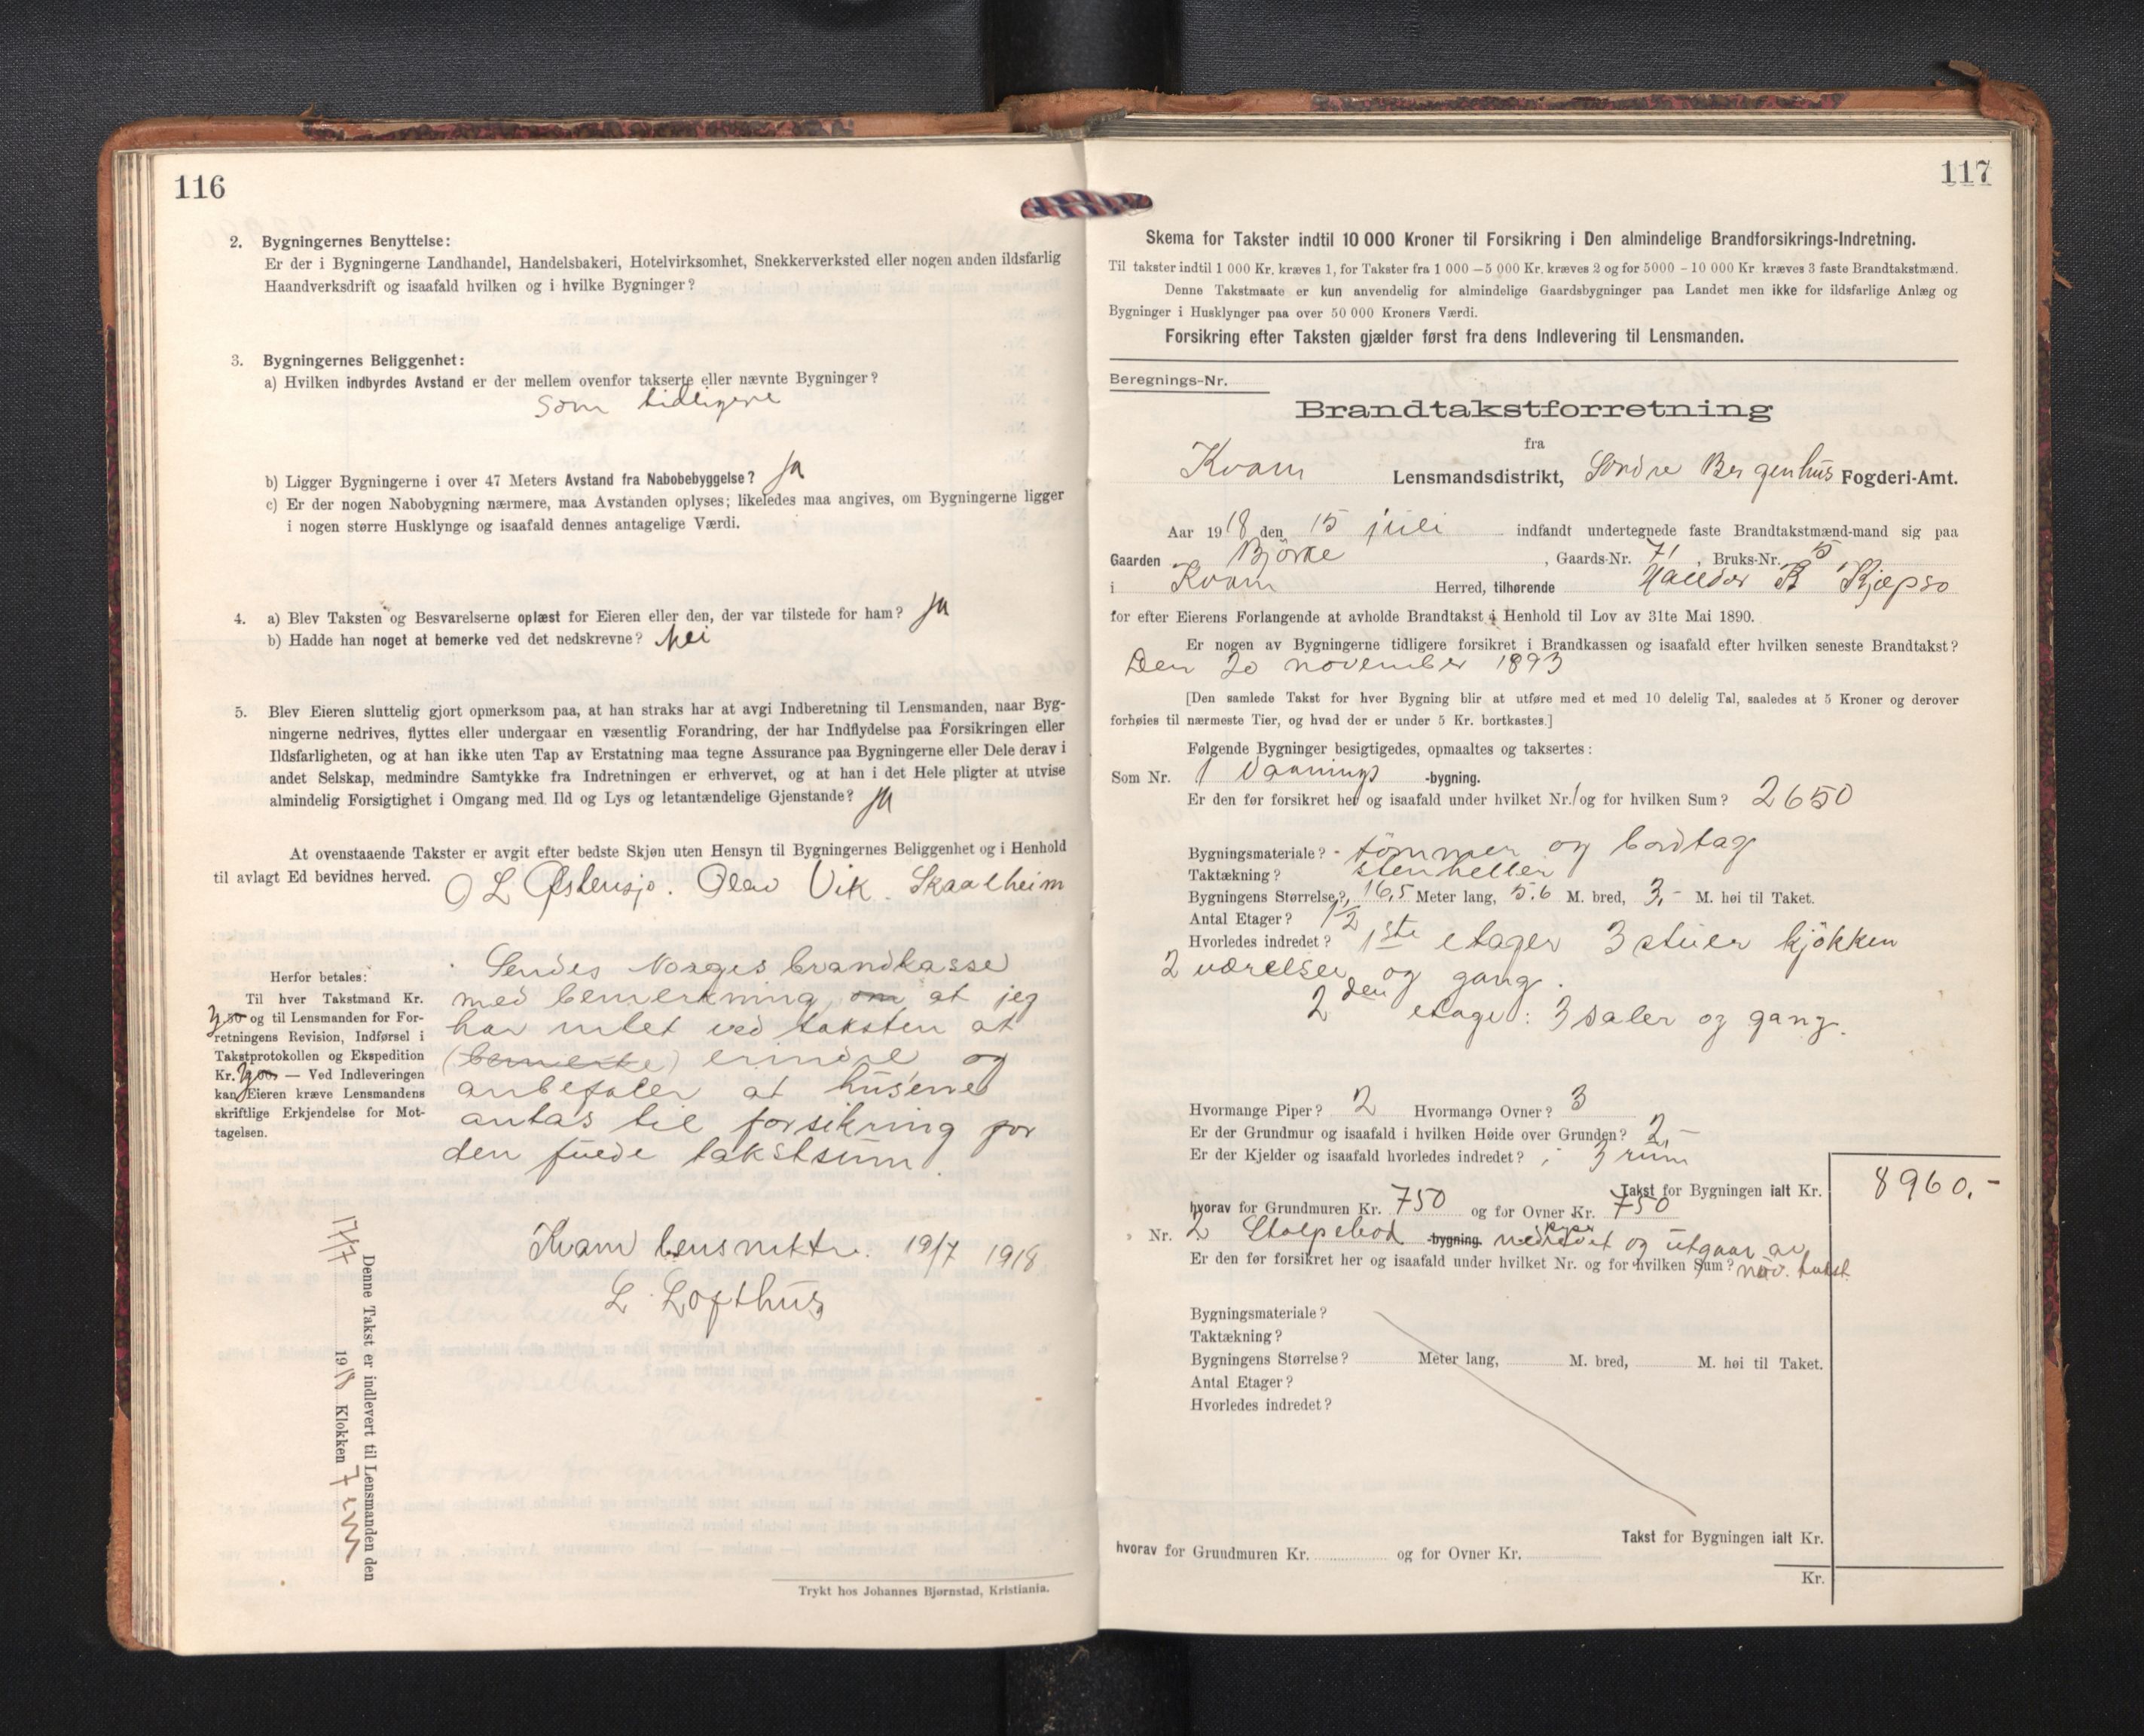 116
2. Bygningernes Benyttelse:
Er der i Bygningerne Landhandel, Handelsbakeri, Hotelvirksomhet, Snekkerverksted eller nogen anden ildsfarlig
Haandverksdrift og isaafald hvilken og i hvilke Bygninger?
3. Bygningernes Beliggenhet:
a) Hvilken indbyrdes Avstand er der mellem ovenfor takserte eller nævnte Bygninger?
som tidligere
b) Ligger Bygningerne i over 47 Meters Avstand fra Nabobebyggelse? ja
c) Er der nogen Nabobygning nærmere, maa Avstanden oplyses; likeledes maa angives, om Bygningerne ligger
i nogen større Husklynge og isaafald dennes antagelige Værdi.
4. a) Blev Taksten og Besvarelserne oplæst for Eieren eller den, der var tilstede for ham? ja
b) Hadde han noget at bemerke ved det nedskrevne? Nei
5. Blev Eieren sluttelig gjort opmerksom paa, at han straks har at avgi Indberetning til Lensmanden, naar Byg-
ningerne nedrives, flyttes eller undergaar en væsentlig Forandring, der har Indflydelse paa Forsikringen eller
Ildsfarligheten, og at han ikke uten Tap av Erstatning maa tegne Assurance paa Bygningerne eller Dele derav i
andet Selskap, medmindre Samtykke fra Indretningen er erhvervet, og at han i det Hele pligter at utvise
almindelig Forsigtighet i Omgang med Ild og Lys og letantændelige Gjenstande? ja
At ovenstaaende Takster er avgit efter bedste Skjøn uten Hensyn til Bygningernes Beliggenhet og i Henhold
til avlagt Ed bevidnes herved. O L Østensjo. Olav Vik. Skaalheim
Herfor betales:
Til hver Takstmand Kr.
og til Lensmanden for For-
retningens Revision, Indførsel i
Takstprotokollen og Ekspedition
Kr. — Ved Indleveringen
kan Eieren kræve Lensmandens
skriftlige Erkjendelse for Mot-
tagelsen.
Sendes Norges brandkasse
med bemerkning om at jeg
har intet ved taksten at
(bemerke) erindre og
anbefaler at husene
antas til forsikring for
den fulde takstsum.
Kvam lensmktr. 19/7 1918
L. Lofthus
Denne Takst er indlevert til Lensmanden den
17/7 1918 Klokken 7 em
Trykt hos Johannes Bjørnstad, Kristiania.
117
Skema for Takster indtil 10 000 Kroner til Forsikring i Den almindelige Brandforsikrings-Indretning.
Til takster indtil 1 000 Kr. kræves 1, for Takster fra 1 000 — 5 000 Kr. kræves 2 og for 5000 - 10 000 Kr kræves 3 faste Brandtakstmænd.
Denne Takstmaate er kun anvendelig for almindelige Gaardsbygninger paa Landet men ikke for ildsfarlige Anlæg og
Bygninger i Husklynger paa over 50 000 Kroners Værdi.
Forsikring efter Taksten gjælder først fra dens Indlevering til Lensmanden.
Beregnings-Nr.
Brandtakstforretning
fra
Kvam Lensmandsdistrikt, Søndre Bergenhus Fogderi-Amt.
Aar 1918 den 15 juli indfandt undertegnede faste Brandtakstmænd-mand sig paa
Gaarden Björke, Gaards-Nr. 71, Bruks-Nr. 5
i Kvam Herred, tilhørende Halldor K Kjepso
for efter Eierens Forlangende at avholde Brandtakst i Henhold til Lov av 31te Mai 1890.
Er nogen av Bygningerne tidligere forsikret i Brandkassen og isaafald efter hvilken seneste Brandtakst?
Den 20 november 1893
[Den samlede Takst for hver Bygning blir at utføre med et med 10 delelig Tal, saaledes at 5 Kroner og derover
forhøies til nærmeste Tier, og hvad der er under 5 Kr. bortkastes.]
Følgende Bygninger besigtigedes, opmaaltes og taksertes:
Som Nr. 1 Vaanings -bygning.
Er den før forsikret her og isaafald under hvilket Nr. 1 og for hvilken Sum? 2650
Bygningsmateriale? tömmer og bordtag
Taktækning? stenheller
Bygningens Størrelse? 16,5 Meter lang, 5.6 M. bred, 3,- M. høi til Taket.
Antal Etager? 1 1/2
Hvorledes indredet? 1ste etager 3 stuer kjökken
2 værelser og gang.
2den etage: 3 saler og gang.
Hvormange Piper? 2 Hvormange Ovner? 3
Er der Grundmur og isaafald i hvilken Høide over Grunden? 2,-
Er der Kjelder og isaafald hvorledes indredet? i 3 rum
Takst for Bygningen ialt Kr. 8960.-
hvorav for Grundmuren Kr. 750 og for Ovner Kr. 750
Nr. 2 Stolpebod -bygning. nedrevet og utgaar av
Er den før forsikret her og isaafald under hvilket Nr. og for hvilken Sum? nov. takst
Bygningsmateriale?
Taktækning?
Bygningens Størrelse? Meter lang, M. bred, M. høi til Taket.
Antal Etager?
Hvorledes indredet?
Takst for Bygningen ialt Kr.
hvorav for Grundmuren Kr. og for Ovner Kr.
Kr.